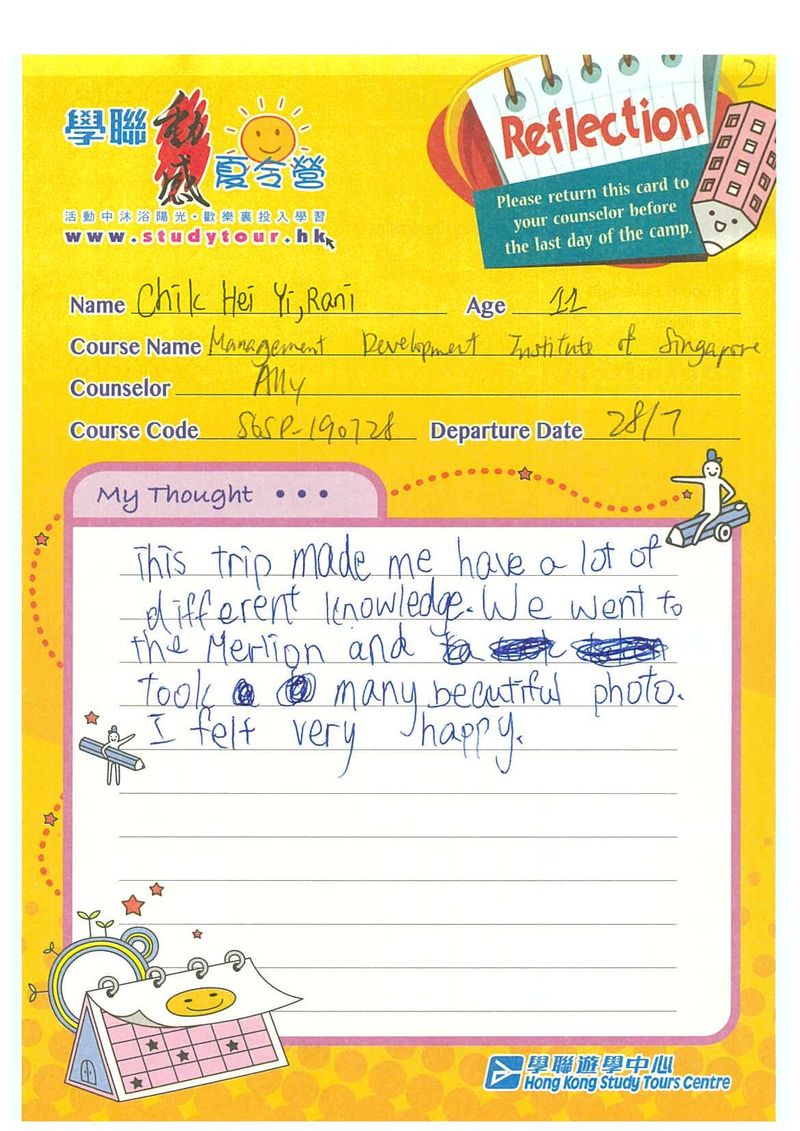 2
學聯動感夏令營
Reflection
Please return this card to
your counselor before
the last day of the camp.
活動中沐浴陽光・歡樂裏投入學習
www.studytour.hk
Name Chik Hei Yi, Rani Age 11
Course Name Management Development Institute of Singapore
Counselor Ally
Course Code SGSP-190728 Departure Date 28/7
My Thought • • •
This trip made me have a lot of
different knowledge. We went to
the Merlion and
took many beautiful photo.
I felt very happy.
學聯遊學中心
Hong Kong Study Tours Centre